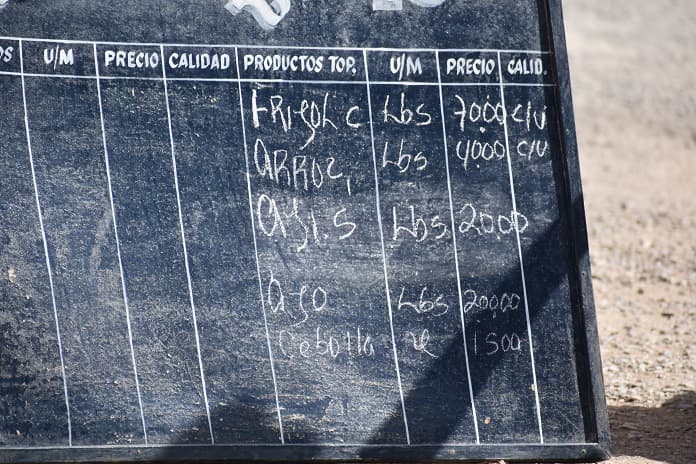 OS U/M PRECIO CALIDAD PRODUCTOS TOP. U/M PRECIO CALID.
FRIJOL C Lbs 7000 c/u
ARROZ, Lbs 4000 c/u
Lbs 2000
AJO Lbs 20000
Cebolla 1500